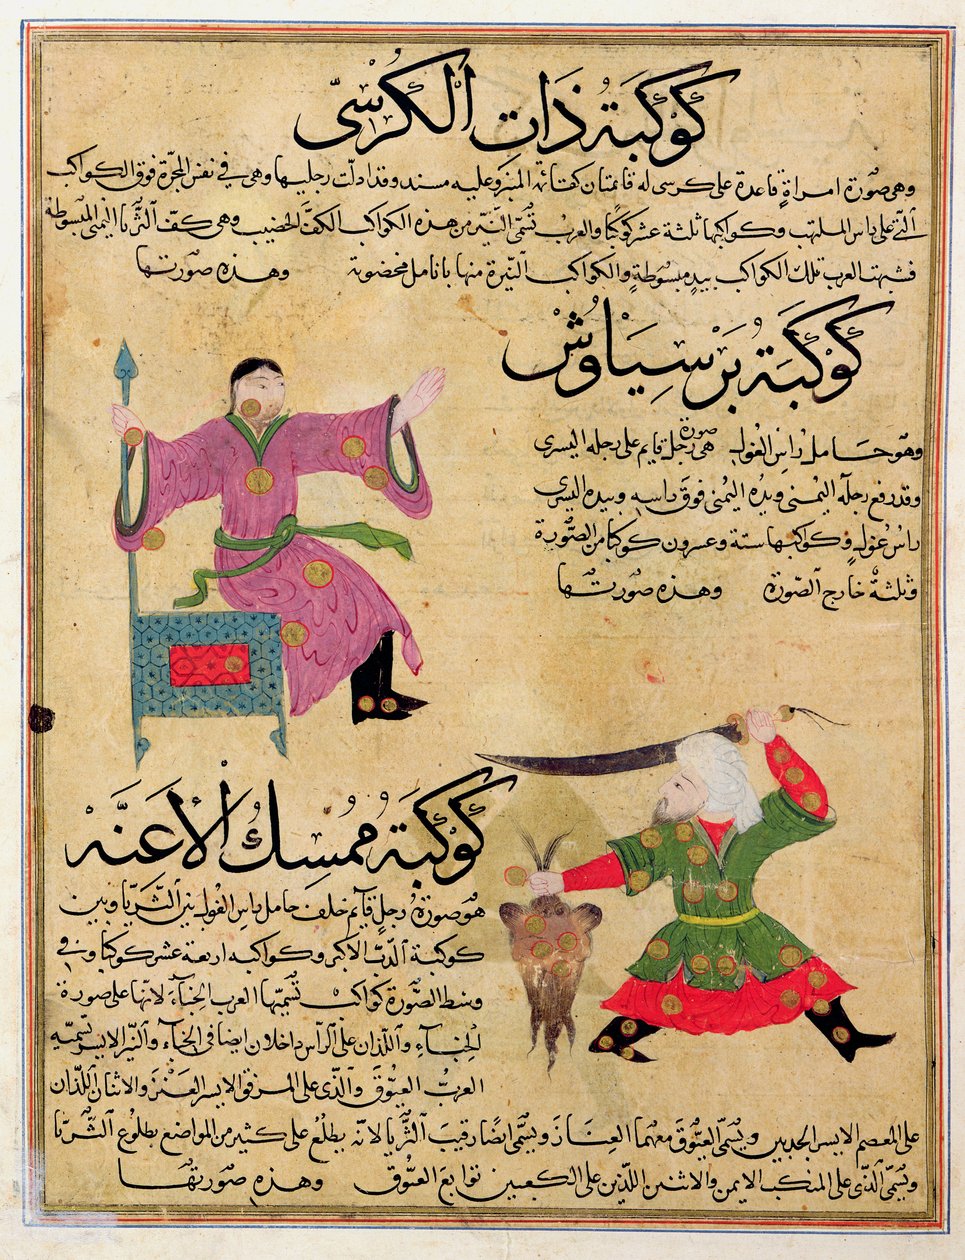 كَوْكَبَةُ ذَاتِ الْكُرْسِيّ
وهى صورة امراةٍ قاعدة على كرسى له قائمتان كقائمة المنبر وعليه مسند وقد ادلت رجليها وهى فى نفس المجرّة فوق الكواكب
التى على راس الملتهب وكواكبها ثلثة عشر كوكبًا والعرب تسمّى النيّر من هذه الكواكب الكفّ الخضيب وهى كفّ الثريّا اليمنى المبسوطة
فشبهت العرب تلك الكواكب بيدٍ مبسوطةٍ والكواكب النيّرة منها بانامل مخضوبة وهذه صورتها
كَوْكَبَةُ بَرْسِيَاوُش
وهو حامل راس الغول هى صورة رجل قايم على رجله اليسرى
وقد رفع رجله اليمنى ويده اليمنى فوق راسه وبيده اليسرى
راس غول وكواكبها ستة وعسرون كوكبا من الصّورة
وثلثةٌ خارج الصّورة وهذه صورتها
كَوْكَبَةُ مُمْسِكُ الْأَعِنَّه
هو صورة رجلٍ قايم خلف حامل راس الغول بين الثّريّا وبين
كوكبة الدّب الاكبر وكواكبه اربعة عشر كوكبا وفى
وسط الصّورة كواكب تسمّيها العرب الخباء لانها على صورة
الخباءِ واللذان على الراس داخلان ايضا فى الخباء والنيّر الايسر تسميه
العربُ العيّوق والذى على المرفق الايسر العنز والاثنان اللّذان
على المعصم الايسر الجديين ويسمّى العيّوق معهما العناز ويسمّى ايضًا رقيب الثّريا لانه يطلع على كثير من المواضع بطلوع الثّريّا
ويسمّى الذى على المنكب الايمن والاثنين اللّذين على الكعبين توابع العيّوق وهذه صورتها